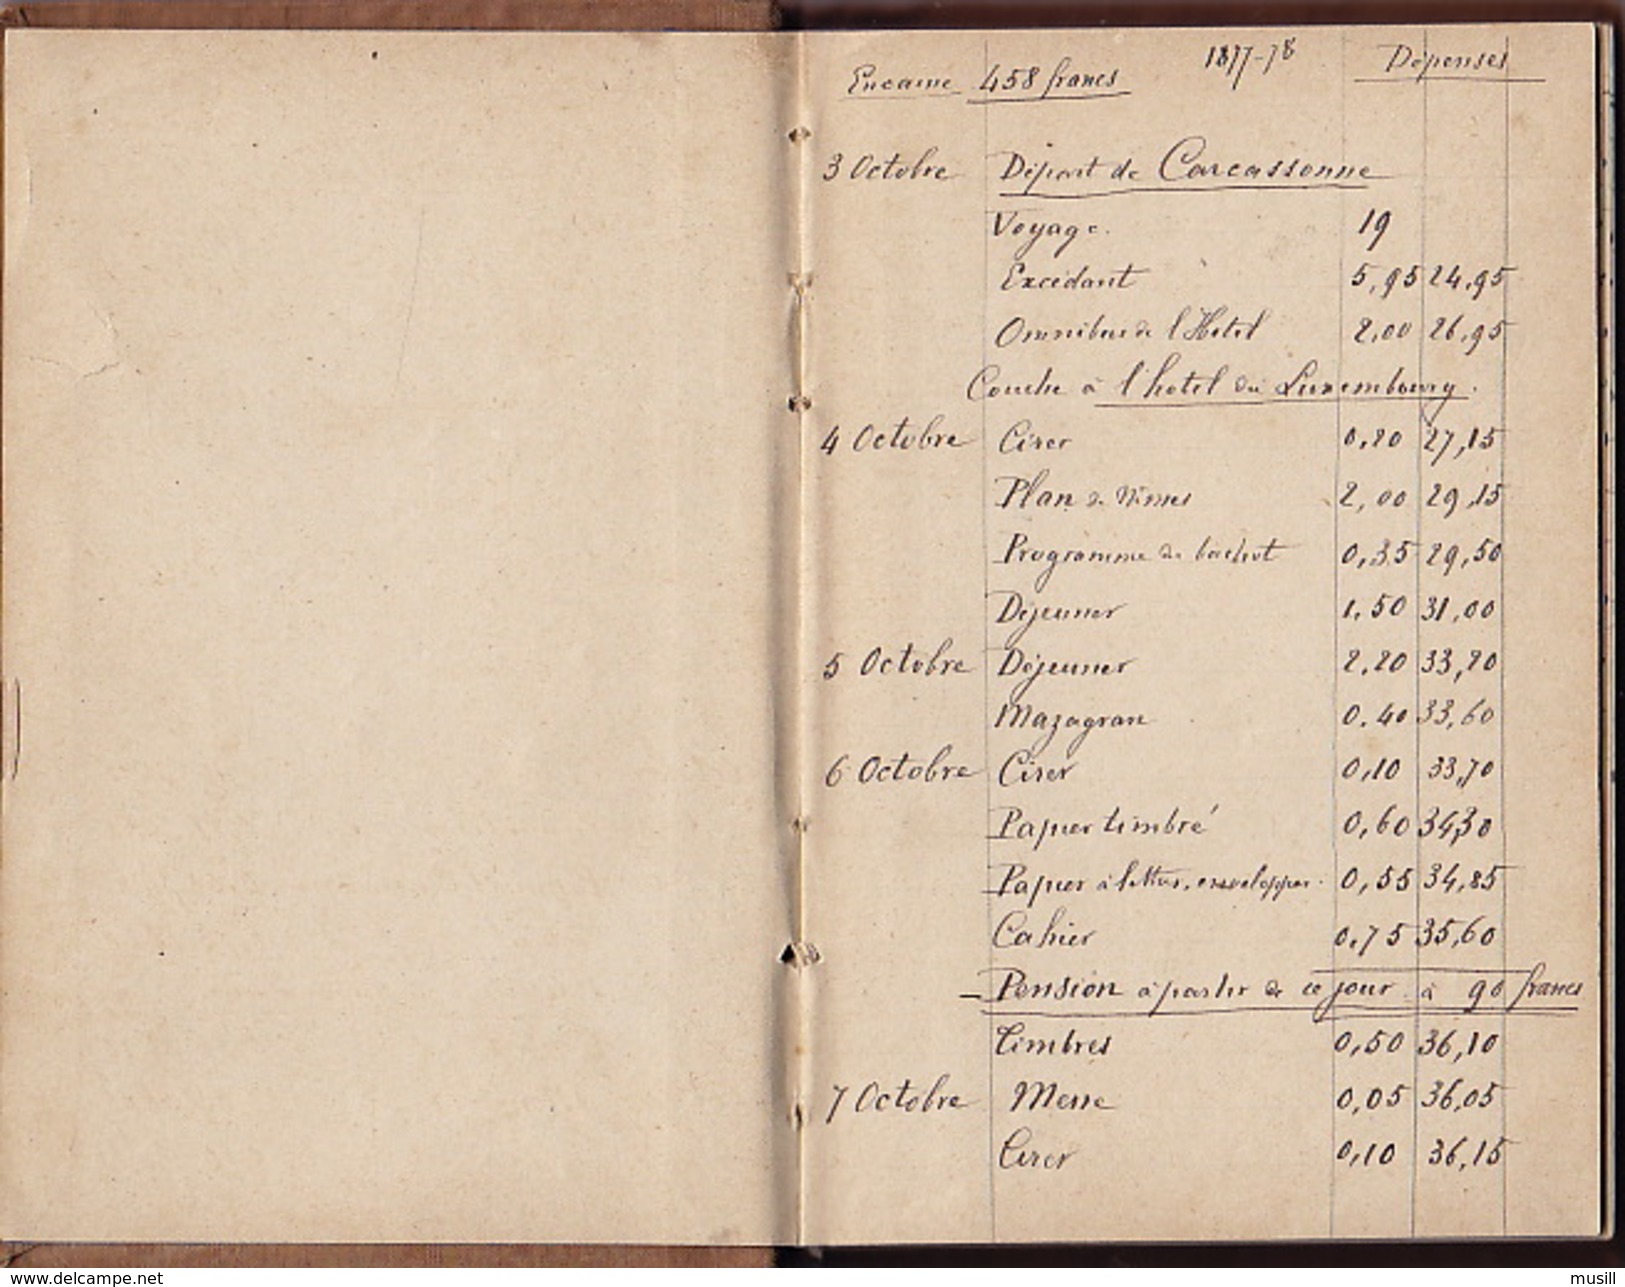 1877-78 Dépenses
Encaisse 458 francs
3 Octobre Départ de Carcassonne
Voyage. 19
Excédant 5,95 24,95
Omnibus de l'Hotel 2,00 26,95
Couche à l'hotel du Luxembourg.
4 Octobre Cirer 0,20 27,15
Plan de Nimes 2,00 29,15
Programme de bachot 0,35 29,50
Déjeuner 1,50 31,00
5 Octobre Déjeuner 2,20 33,20
Mazagran 0,40 33,60
6 Octobre Cirer 0,10 33,70
Papier timbré 0,60 34,30
Papier à lettres, enveloppes. 0,55 34,85
Cahier 0,75 35,60
Pension à partir de ce jour à 90 francs
Timbres 0,50 36,10
7 Octobre Messe 0,05 36,05
Cirer 0,10 36,15
www.delcampe.net
musill